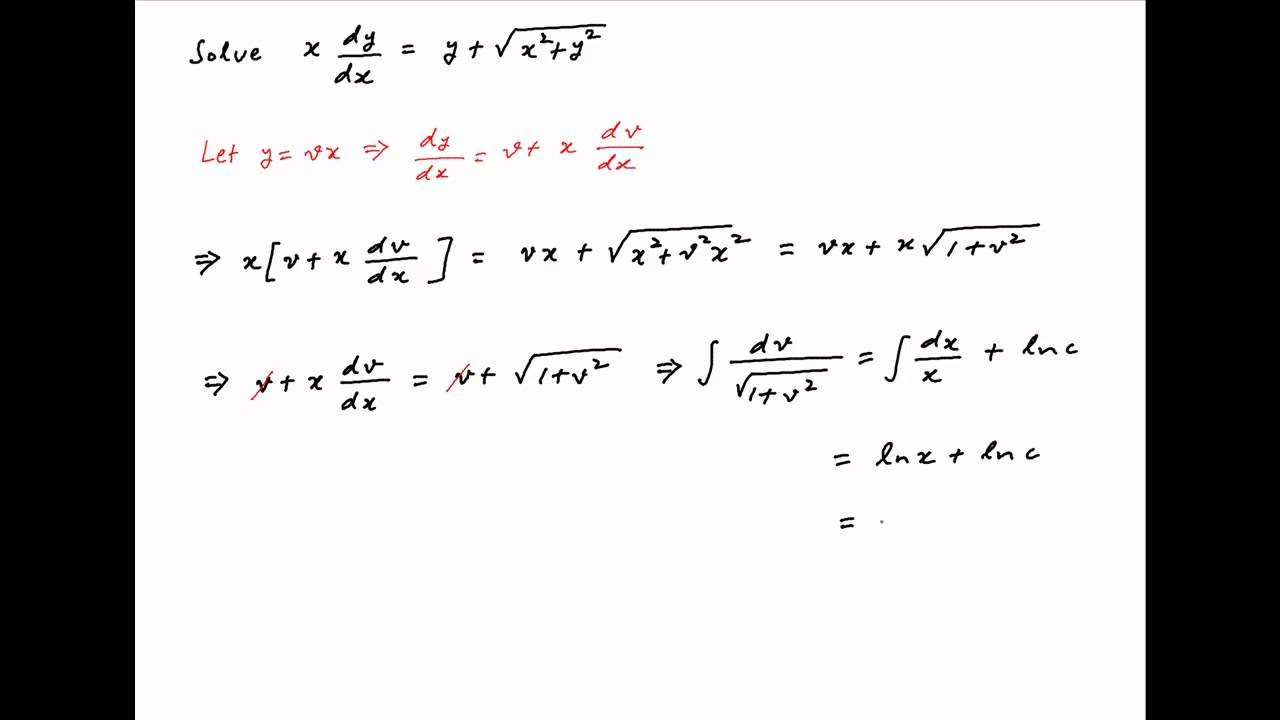 Solve x dy/dx = y + √(x²+y²)
Let y = vx ⇒ dy/dx = v + x dv/dx
⇒ x[v + x dv/dx] = vx + √(x²+v²x²) = vx + x√(1+v²)
⇒ v + x dv/dx = v + √(1+v²) ⇒ ∫ dv/√(1+v²) = ∫ dx/x + ln c
= ln x + ln c
=